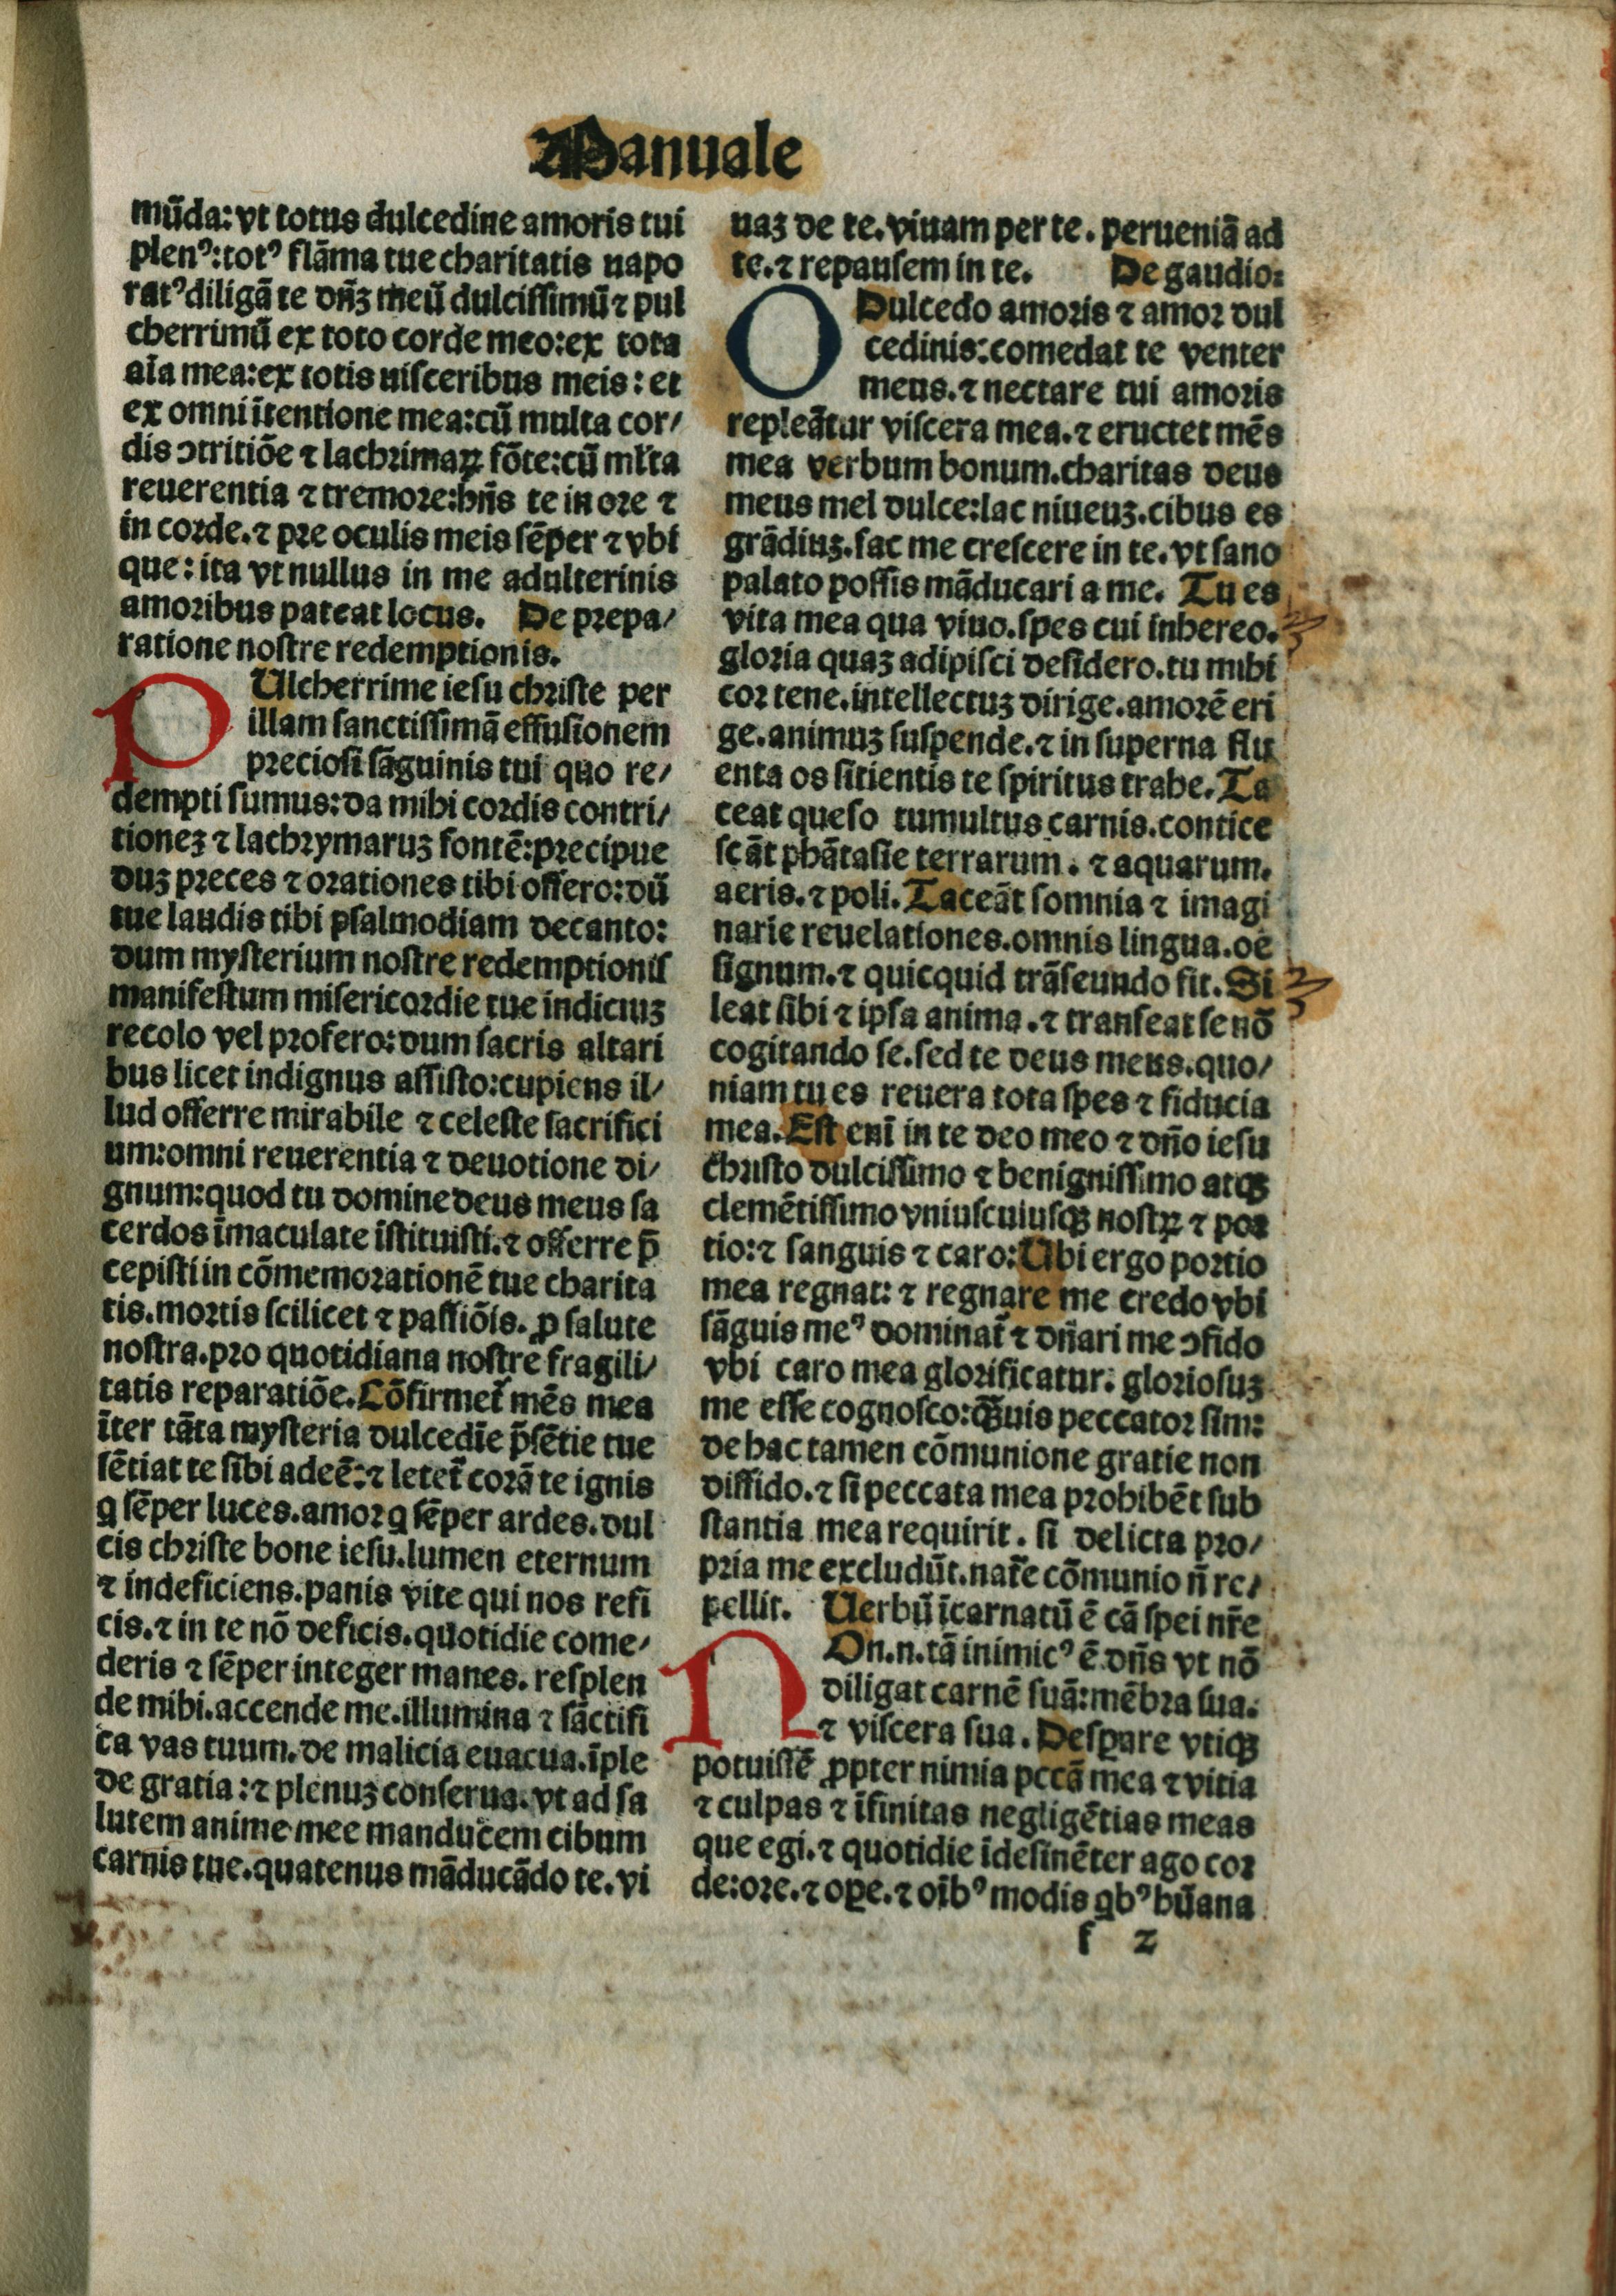 Manuale
mũda: vt totus dulcedine amoris tui
plenꝰ: totꝰ flãma tue charitatis uapo
ratꝰ diligã te dñꝫ meũ dulcissimũ ⁊ pul
cherrimũ ex toto corde meo: ex tota
aĩa mea: ex totis uisceribus meis: et
ex omni ĩtentione mea: cũ multa cor/
dis ↄtritiõe ⁊ lachrimaꝝ fõte: cũ ml̃ta
reuerentia ⁊ tremore: hñs te in ore ⁊
in corde. ⁊ pre oculis meis sẽper ⁊ vbi
que: ita vt nullus in me adulterinis
amoribus pateat locus. De prepa/
ratione nostre redemptionis.
PUlcherrime iesu christe per
illam sanctissimã effusionem
preciosi sãguinis tui quo re/
dempti sumus: da mihi cordis contri/
tioneꝫ ⁊ lachrymaruꝫ fontẽ: precipue
duꝫ preces ⁊ orationes tibi offero: dũ
tue laudis tibi psalmodiam decanto:
dum mysterium nostre redemptionis
manifestum misericordie tue indiciuꝫ
recolo vel profero: dum sacris altari
bus licet indignus assisto: cupiens il/
lud offerre mirabile ⁊ celeste sacrifici
um: omni reuerentia ⁊ deuotione di/
gnum: quod tu domine deus meus sa
cerdos ĩmaculate ĩstituisti. ⁊ offerre p̃
cepisti in cõmemorationẽ tue charita
tis. mortis scilicet ⁊ passiõis. ꝓ salute
nostra. pro quotidiana nostre fragili/
tatis reparatiõe. Cõfirmet᷑ mẽs mea
ĩter tãta mysteria dulcedĩe p̃sẽtie tue
sẽtiat te sibi adeẽ: ⁊ letet᷑ corã te ignis
q sẽper luces. amor q sẽper ardes. dul
cis christe bone iesu. lumen eternum
⁊ indeficiens. panis vite qui nos refi
cis. ⁊ in te nõ deficis. quotidie come/
deris ⁊ sẽper integer manes. resplen
de mihi. accende me. illumina ⁊ sãctifi
ca vas tuum. de malicia euacua. ĩple
de gratia: ⁊ plenuꝫ conserua. vt ad sa
lutem anime mee manducem cibum
carnis tue. quatenus mãducãdo te. vi
uaꝫ de te. viuam per te. perueniã ad
te. ⁊ repausem in te. De gaudio:
O Dulcedo amoris ⁊ amor dul
cedinis: comedat te venter
meus. ⁊ nectare tui amoris
repleãtur viscera mea. ⁊ eructet mẽs
mea verbum bonum. charitas deus
meus mel dulce: lac niueuꝫ. cibus es
grãdiuꝫ. fac me crescere in te. vt sano
palato possis mãducari a me. Tu es
vita mea qua viuo. spes cui inhereo.
gloria quaꝫ adipisci desidero. tu mihi
cor tene. intellectuꝫ dirige. amorẽ eri
ge. animuꝫ suspende. ⁊ in superna flu
enta os sitientis te spiritus trahe. Ta
ceat queso tumultus carnis. contice
scãt phãtasie terrarum. ⁊ aquarum.
aeris. ⁊ poli. Taceãt somnia ⁊ imagi
narie reuelationes. omnis lingua. oẽ
signum. ⁊ quicquid trãseundo fit. Si
leat sibi ⁊ ipsa anima. ⁊ transeat se nõ
cogitando se. sed te deus meus. quo/
niam tu es reuera tota spes ⁊ fiducia
mea. Est enĩ in te deo meo ⁊ dño iesu
christo dulcissimo ⁊ benignissimo atqꝫ
clemẽtissimo vniuscuiusqꝫ nostꝝ ⁊ por
tio: ⁊ sanguis ⁊ caro: Ubi ergo portio
mea regnat: ⁊ regnare me credo vbi
sãguis meꝰ dominat᷑ ⁊ dñari me ↄfido
vbi caro mea glorificatur. gloriosuꝫ
me esse cognosco: qꝫuis peccator sim:
de hac tamen cõmunione gratie non
diffido. ⁊ si peccata mea prohibẽt sub
stantia mea requirit. si delicta pro/
pria me excludũt. nar̃e cõmunio ñ re/
pellit. Uerbũ ĩcarnatũ ẽ cã spei nr̃e
NOn. n. tã inimicꝰ ẽ dñs vt nõ
diligat carnẽ suã: mẽbra sua.
⁊ viscera sua. Desꝑare vtiqꝫ
potuissẽ ꝓpter nimia pccã mea ⁊ vitia
⁊ culpas ⁊ ĩfinitas negligẽtias meas
que egi. ⁊ quotidie ĩdesinẽter ago cor
de: ore. ⁊ oꝑe. ⁊ oĩbꝰ modis qbꝰ hũana
f 2